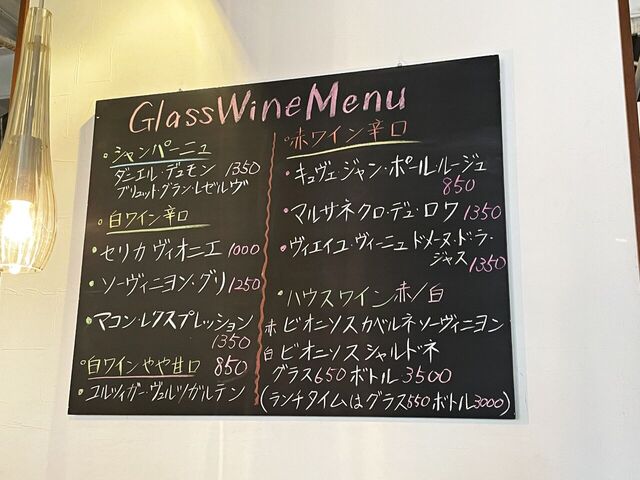 GlassWineMenu
・シャンパーニュ
ダニエル・デュモン 1350
ブリュット・グラン・レゼルヴ
・白ワイン辛口
・セリカ ヴィオニエ 1000
・ソーヴィニヨン・グリ 1250
・マコン・レクスプレッション
1350
・白ワイン やや甘口 850
・ユルツィガー・ヴュルツガルテン
・赤ワイン辛口
・キュヴェ・ジャン・ポール・ルージュ
850
・マルサネ クロ・デュ・ロワ 1350
・ヴィエイユ・ヴィーニュ ドメーヌ・ド・ラ・
ジャス 1350
・ハウスワイン 赤/白
赤 ビオニソス カベルネ ソーヴィニヨン
白 ビオニソス シャルドネ
グラス650 ボトル 3500
(ランチタイムはグラス550 ボトル3000)